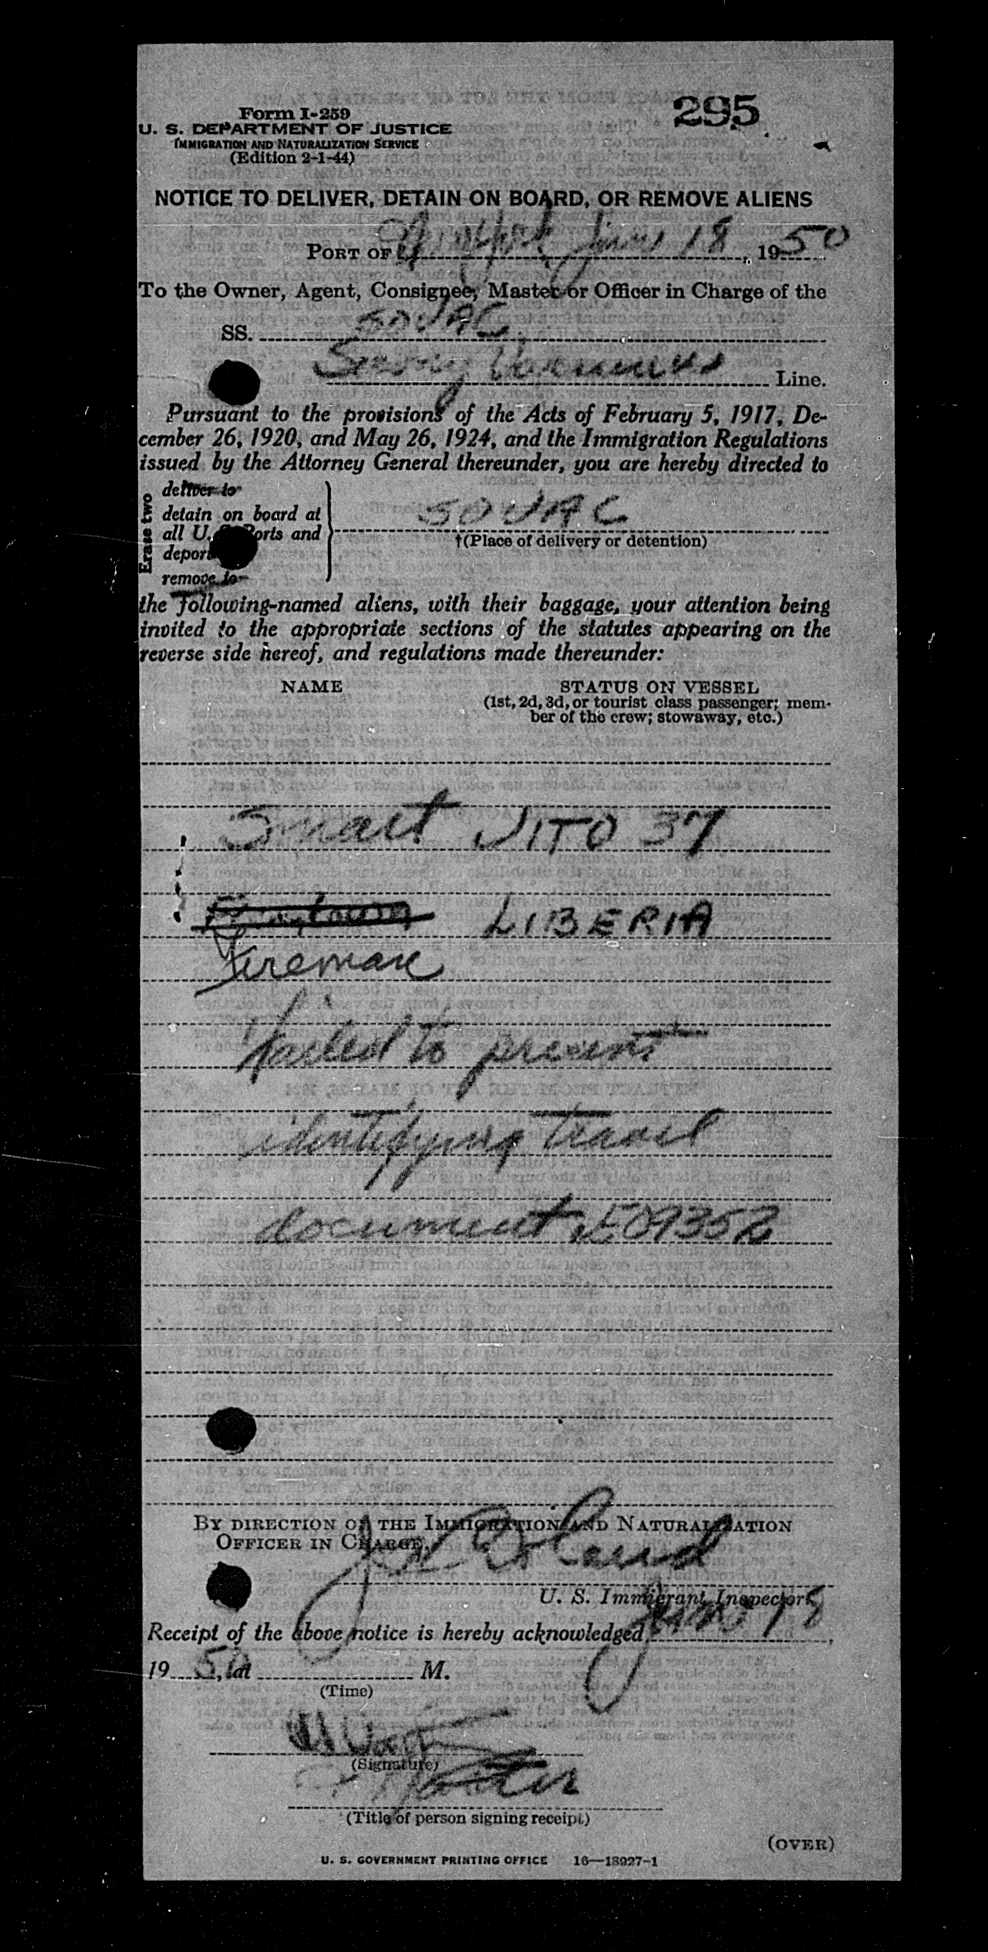 295
Form I-259
U. S. DEPARTMENT OF JUSTICE
IMMIGRATION AND NATURALIZATION SERVICE
(Edition 2-1-44)
NOTICE TO DELIVER, DETAIN ON BOARD, OR REMOVE ALIENS
PORT OF New York, June 18, 1950
To the Owner, Agent, Consignee, Master or Officer in Charge of the
SS. SOVAC
Socony Vacuum Line.
Pursuant to the provisions of the Acts of February 5, 1917, De-
cember 26, 1920, and May 26, 1924, and the Immigration Regulations
issued by the Attorney General thereunder, you are hereby directed to
Erase two
deliver to
detain on board at
all U. S. Ports and
deport
remove to
SOVAC
†(Place of delivery or detention)
the following-named aliens, with their baggage, your attention being
invited to the appropriate sections of the statutes appearing on the
reverse side hereof, and regulations made thereunder:
NAME STATUS ON VESSEL
(1st, 2d, 3d, or tourist class passenger; mem-
ber of the crew; stowaway, etc.)
Smart VITO 37
LIBERIA
Fireman
Failed to present
identifying travel
document EO9352
BY DIRECTION OF THE IMMIGRATION AND NATURALIZATION
OFFICER IN CHARGE,
U. S. Immigrant Inspector.
Receipt of the above notice is hereby acknowledged June 18,
1950, at M.
(Time)
(Signature)
Master
(Title of person signing receipt)
(OVER)
U. S. GOVERNMENT PRINTING OFFICE 16—18927-1